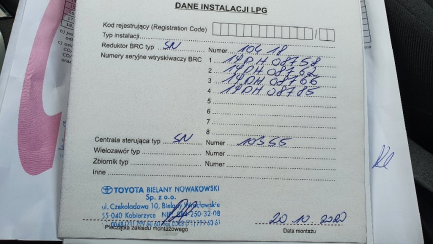 DANE INSTALACJI LPG
Kod rejestrujący (Registration Code)
Typ instalacji
Reduktor BRC typ SN Numer 10418
Numery seryjne wtryskiwaczy BRC 1 14DH 08758
2 14DH 08762
3 14DH 08766
4 14DH 08785
5
6
7
8
Centrala sterująca typ SN Numer 10355
Wielozawór typ Numer
Zbiornik typ Numer
Inne
TOYOTA BIELANY NOWAKOWSKI
Sp. z o.o.
ul. Czekoladowa 10, Bielany Wrocławskie
55-040 Kobierzyce
Pieczątka zakładu montażowego
20.10.2020
Data montażu